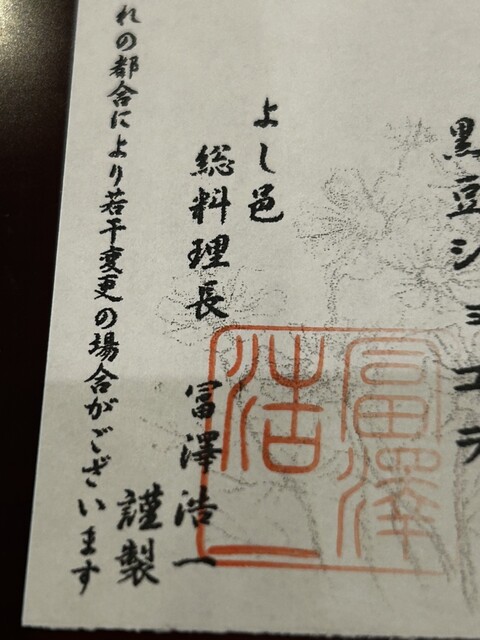 黒豆ショコラ
冨澤
浩一
よし邑
総料理長
冨澤浩一
謹製
れの都合により若干変更の場合がございます